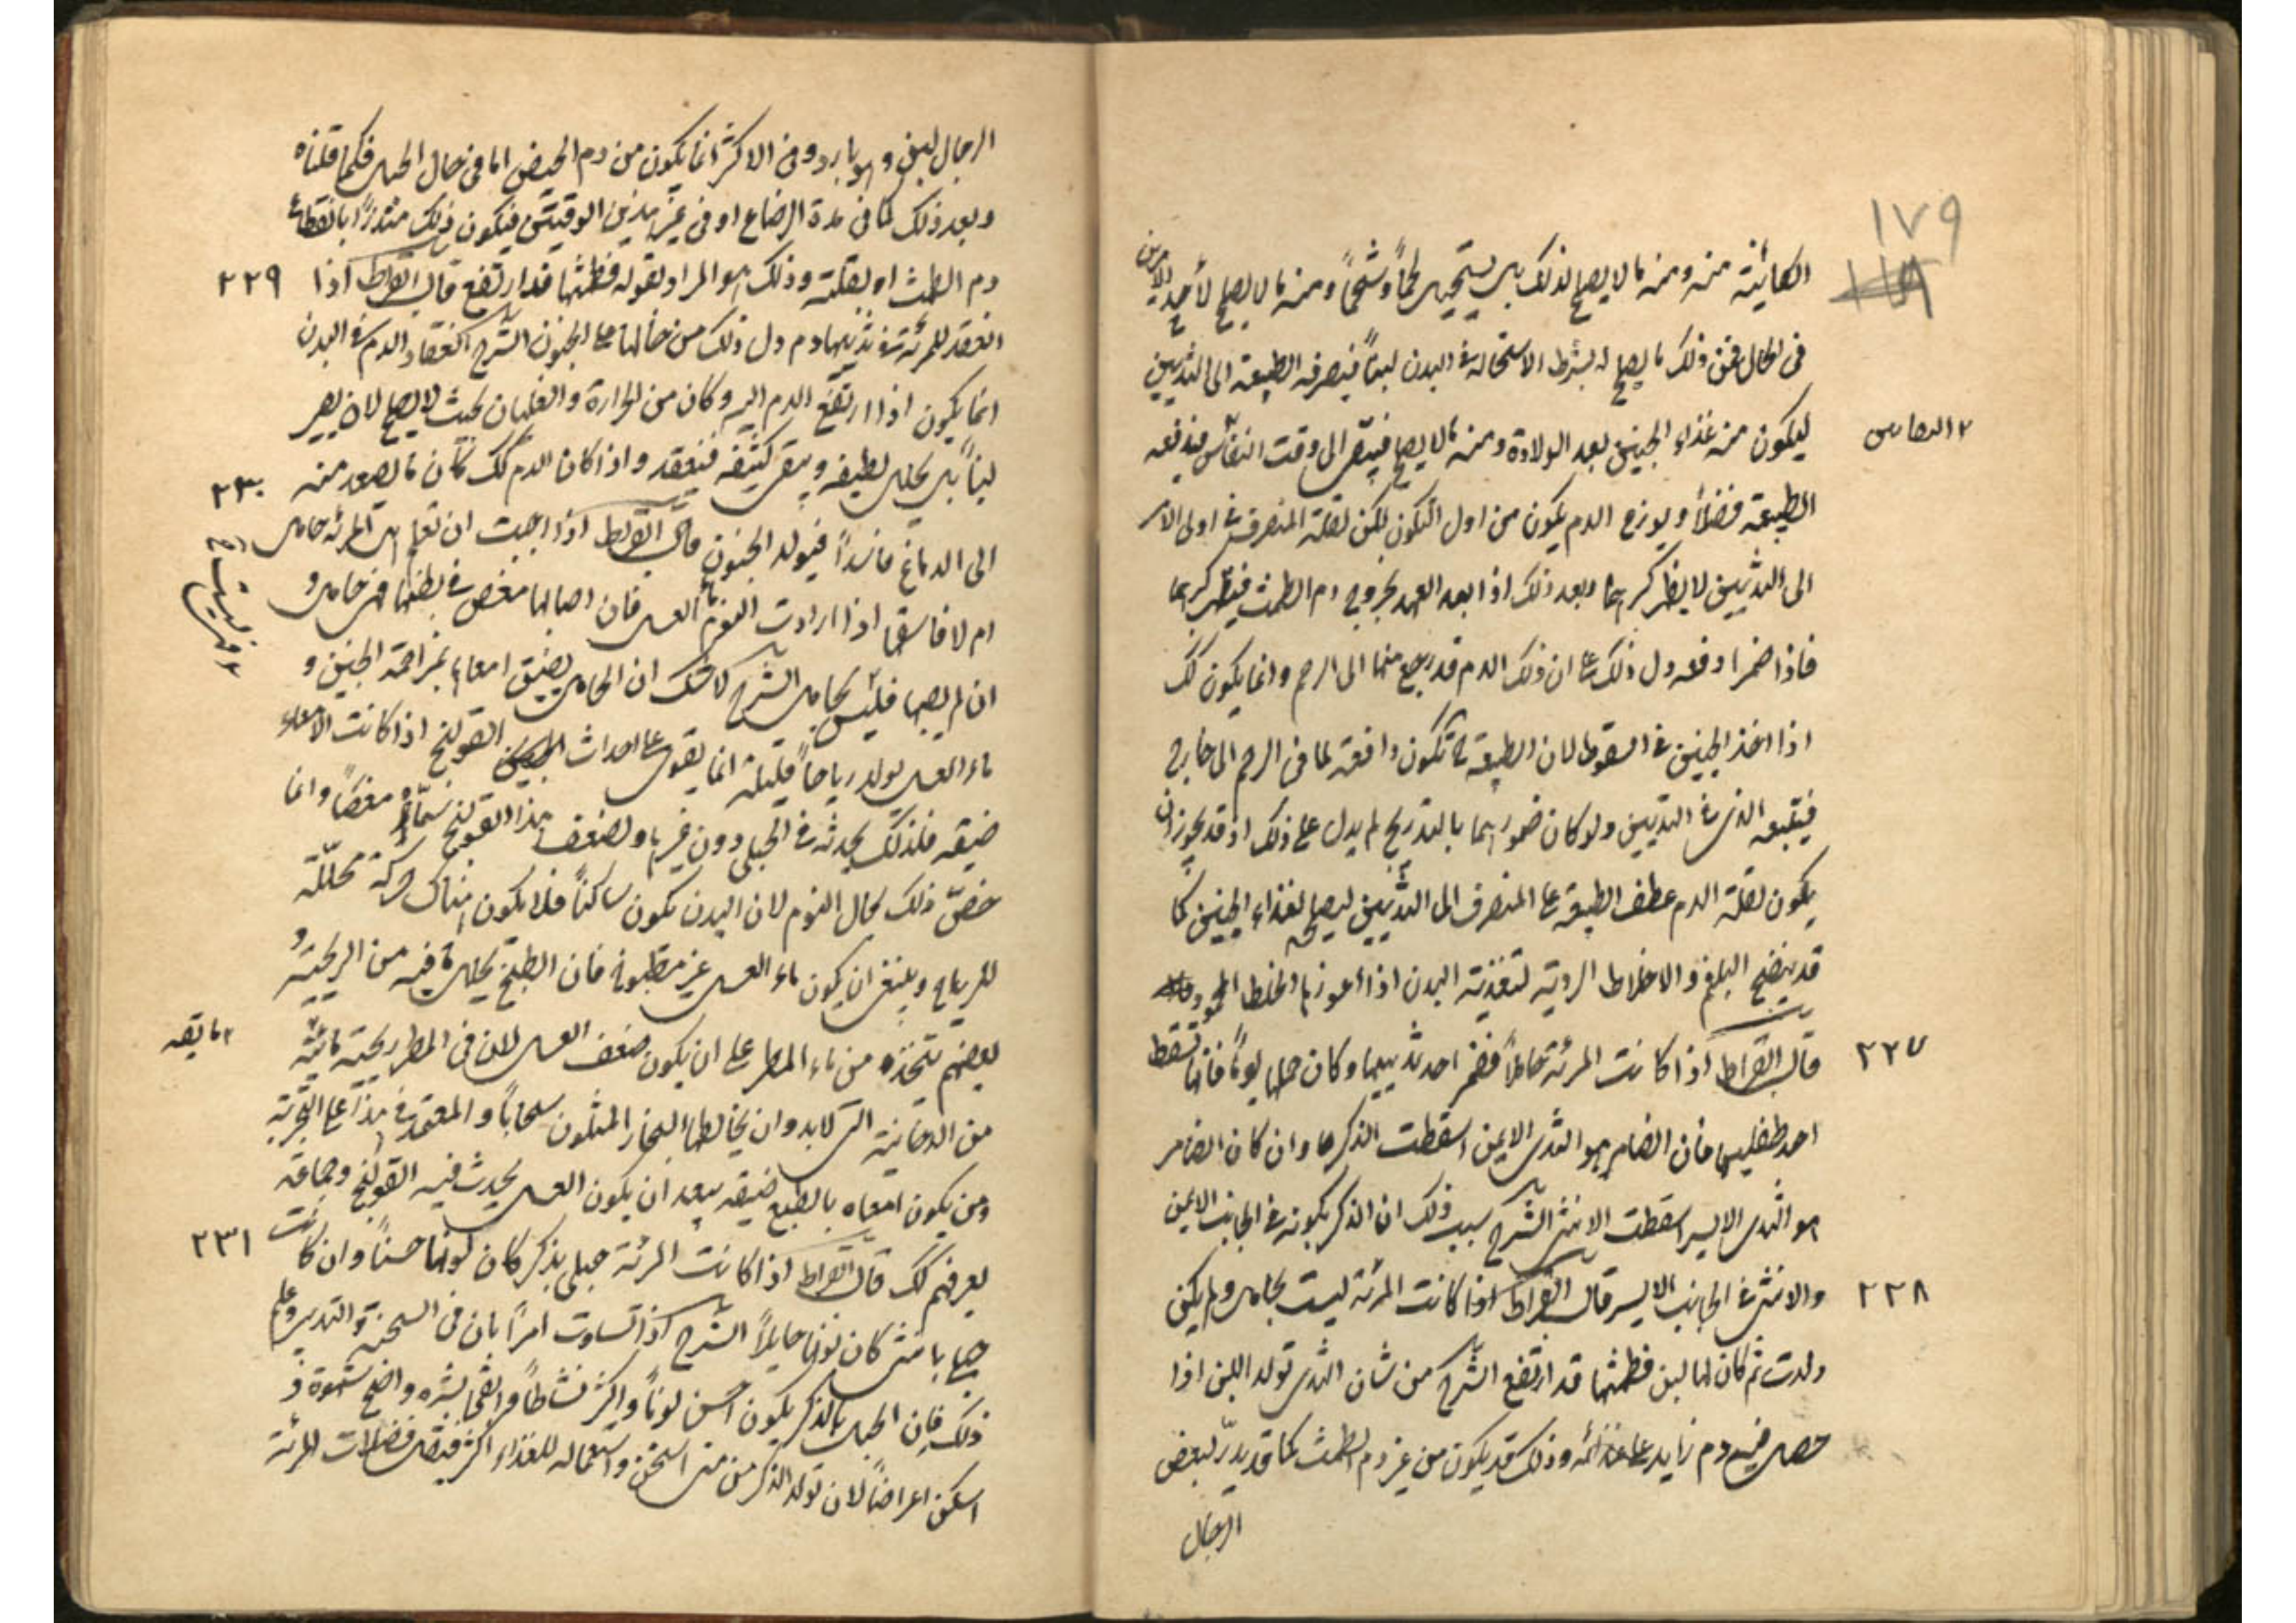 ١٧٩
١١٨
الكائنة منه ومنه ما لا يصلح لذلك بل يستحيل لحماً وشحماً ومنه ما لا يصلح لأحد الامرين
فى الحال فمن ذلك ما يصلح له بشرط الاستحالة فى البدن لبناً فيصرفه الطبيعة الى الثديين
ليكون منه غذاء الجنين بعد الولادة ومنه ما لا يصلح فيبقى الى وقت النفاس فيدفعه
٢ النفاس
الطبيعة فضلاً وتوزع الدم يكون من اول التكون لكن لقلة المنصرف فى اول الامر
الى الثديين لا يظهر كبرهما وبعد ذلك اذا بعد العهد بخروج دم الطمث فيظهر كبرهما
فاذا ضمرا دفعه دل ذلك على ان ذلك الدم قد رجع منهما الى الرحم وانما يكون كك
اذا اخذ الجنين فى السقوط لان الطبيعة ح تكون دافعة لما فى الرحم الى خارج
فيتبعه الذى فى الثديين ولو كان ضمورهما بالتدريج لم يدل على ذلك اذ قد يجوز ان
يكون لقلة الدم عطف الطبيعة على المنصرف الى الثديين ليصلح لغذاء الجنين كما
قد ينضج البلغم والاخلاط الردية لتغذية البدن اذا اعوزها الخلط المحمود
٢٢٧
قال ابقراط اذا كانت المرئة حاملاً فضمر احد ثدييها وكان حملها توماً فانها تسقط
احد طفليها فان الضامر هو الثدى الايمن اسقطت الذكر وان كان الضامر
هو الثدى الايسر اسقطت الانثى الشرح سبب ذلك ان الذكر تكونه فى الجانب الايمن
٢٢٨
والانثى فى الجانب الايسر قال ابقراط اذا كانت المرئة ليست بحامل ولم يكن
ولدت ثم كان لها لبن فطمثها قد ارتفع الشرح من شان الثدى تولد اللبن اذا
حصل فيه دم زايد على غذائه وذلك قد يكون من غير دم الطمث كما قد يدرّ لبعض
الرجال
الرجال لبن وهو بارد وفى الاكثر انما يكون من دم الحيض اما فى حال الحبل فكما قلناه
وبعد ذلك كما فى مدة الرضاع او فى غير هذين الوقيتين فيكون ذلك منذراً بانقطاع
٢٢٩
دم الطمث او بقلته وذلك هو المراد بقوله فطمثها قد ارتفع قال ابقراط اذا
انعقد للمرئة فى ثدييها دم دل ذلك من حالها على الجنون الشرح انعقاد الدم فى البدن
انما يكون اذا ارتفع الدم اليه وكان من الحرارة والغليان بحيث لا يصلح لان يصير
لبناً بل يتحلل لطيفه ويبقى كثيفه فينعقد واذا كان الدم كك كان ما يصعد منه
٢٣٠
الى الدماغ فاسداً فيولد الجنون قال ابقراط اذا احببت ان تعلم هل المرئة حامل
ام لا فاسقها اذا ارادت النوم ماء العسل فان اصابها مغص فى بطنها فهى حامل و
ان لم يصبها فليس بحامل الشرح لا شك ان الحامل يضيق امعاؤها بمزاحمة الجنين و
ماء العسل يولد رياحاً قليلة انما يقوى على احداث القولنج اذا كانت الامعاء
ضيقه فلذلك يحدثه فى الحبلى دون غيرها ولضعف هذا القولنج سمّاه مغصاً وانما
خصّ ذلك بحال النوم لان البدن يكون ساكناً فلا يكون هناك حركة محللة
للرياح وينبغى ان يكون ماء العسل غير مطبوخ فان الطبخ يحلل ما فيه من الريحية و
بعضهم يتخذه من ماء المطر على ان يكون ضعف العسل لان فى المطر ريحية مائية
من الدخانية التى لابد وان يخالطها البخار المتكون سحاباً والمعتمد فى هذا على التجربة
ومن يكون امعاه بالطبع ضيقه يبعد ان يكون العسل يحدث فيه القولنج وجماعة
٢٣١
يعرفهم كك قال ابقراط اذا كانت المرئة حبلى بذكر كان لونها حسناً وان كانت
حبلى بانثى كان لونها حايلاً الشرح اذا تساوت امراتان فى السحنة والتدبير وغير
ذلك فان الحبلى بالذكر يكون احسن لوناً واكثر نشاطاً وانقى بشره واصح شهوة و
اسكن اعراضاً لان تولد الذكر من منى اسخن واستعماله للغذاء اكثر فيقل فضلات المرئة